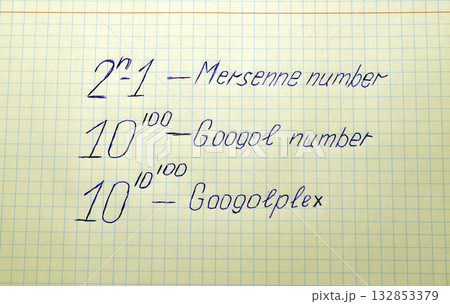 2ⁿ-1 — Mersenne number
10¹⁰⁰ — Googol number
10^10^100 — Googolplex
PIXTA
132853379